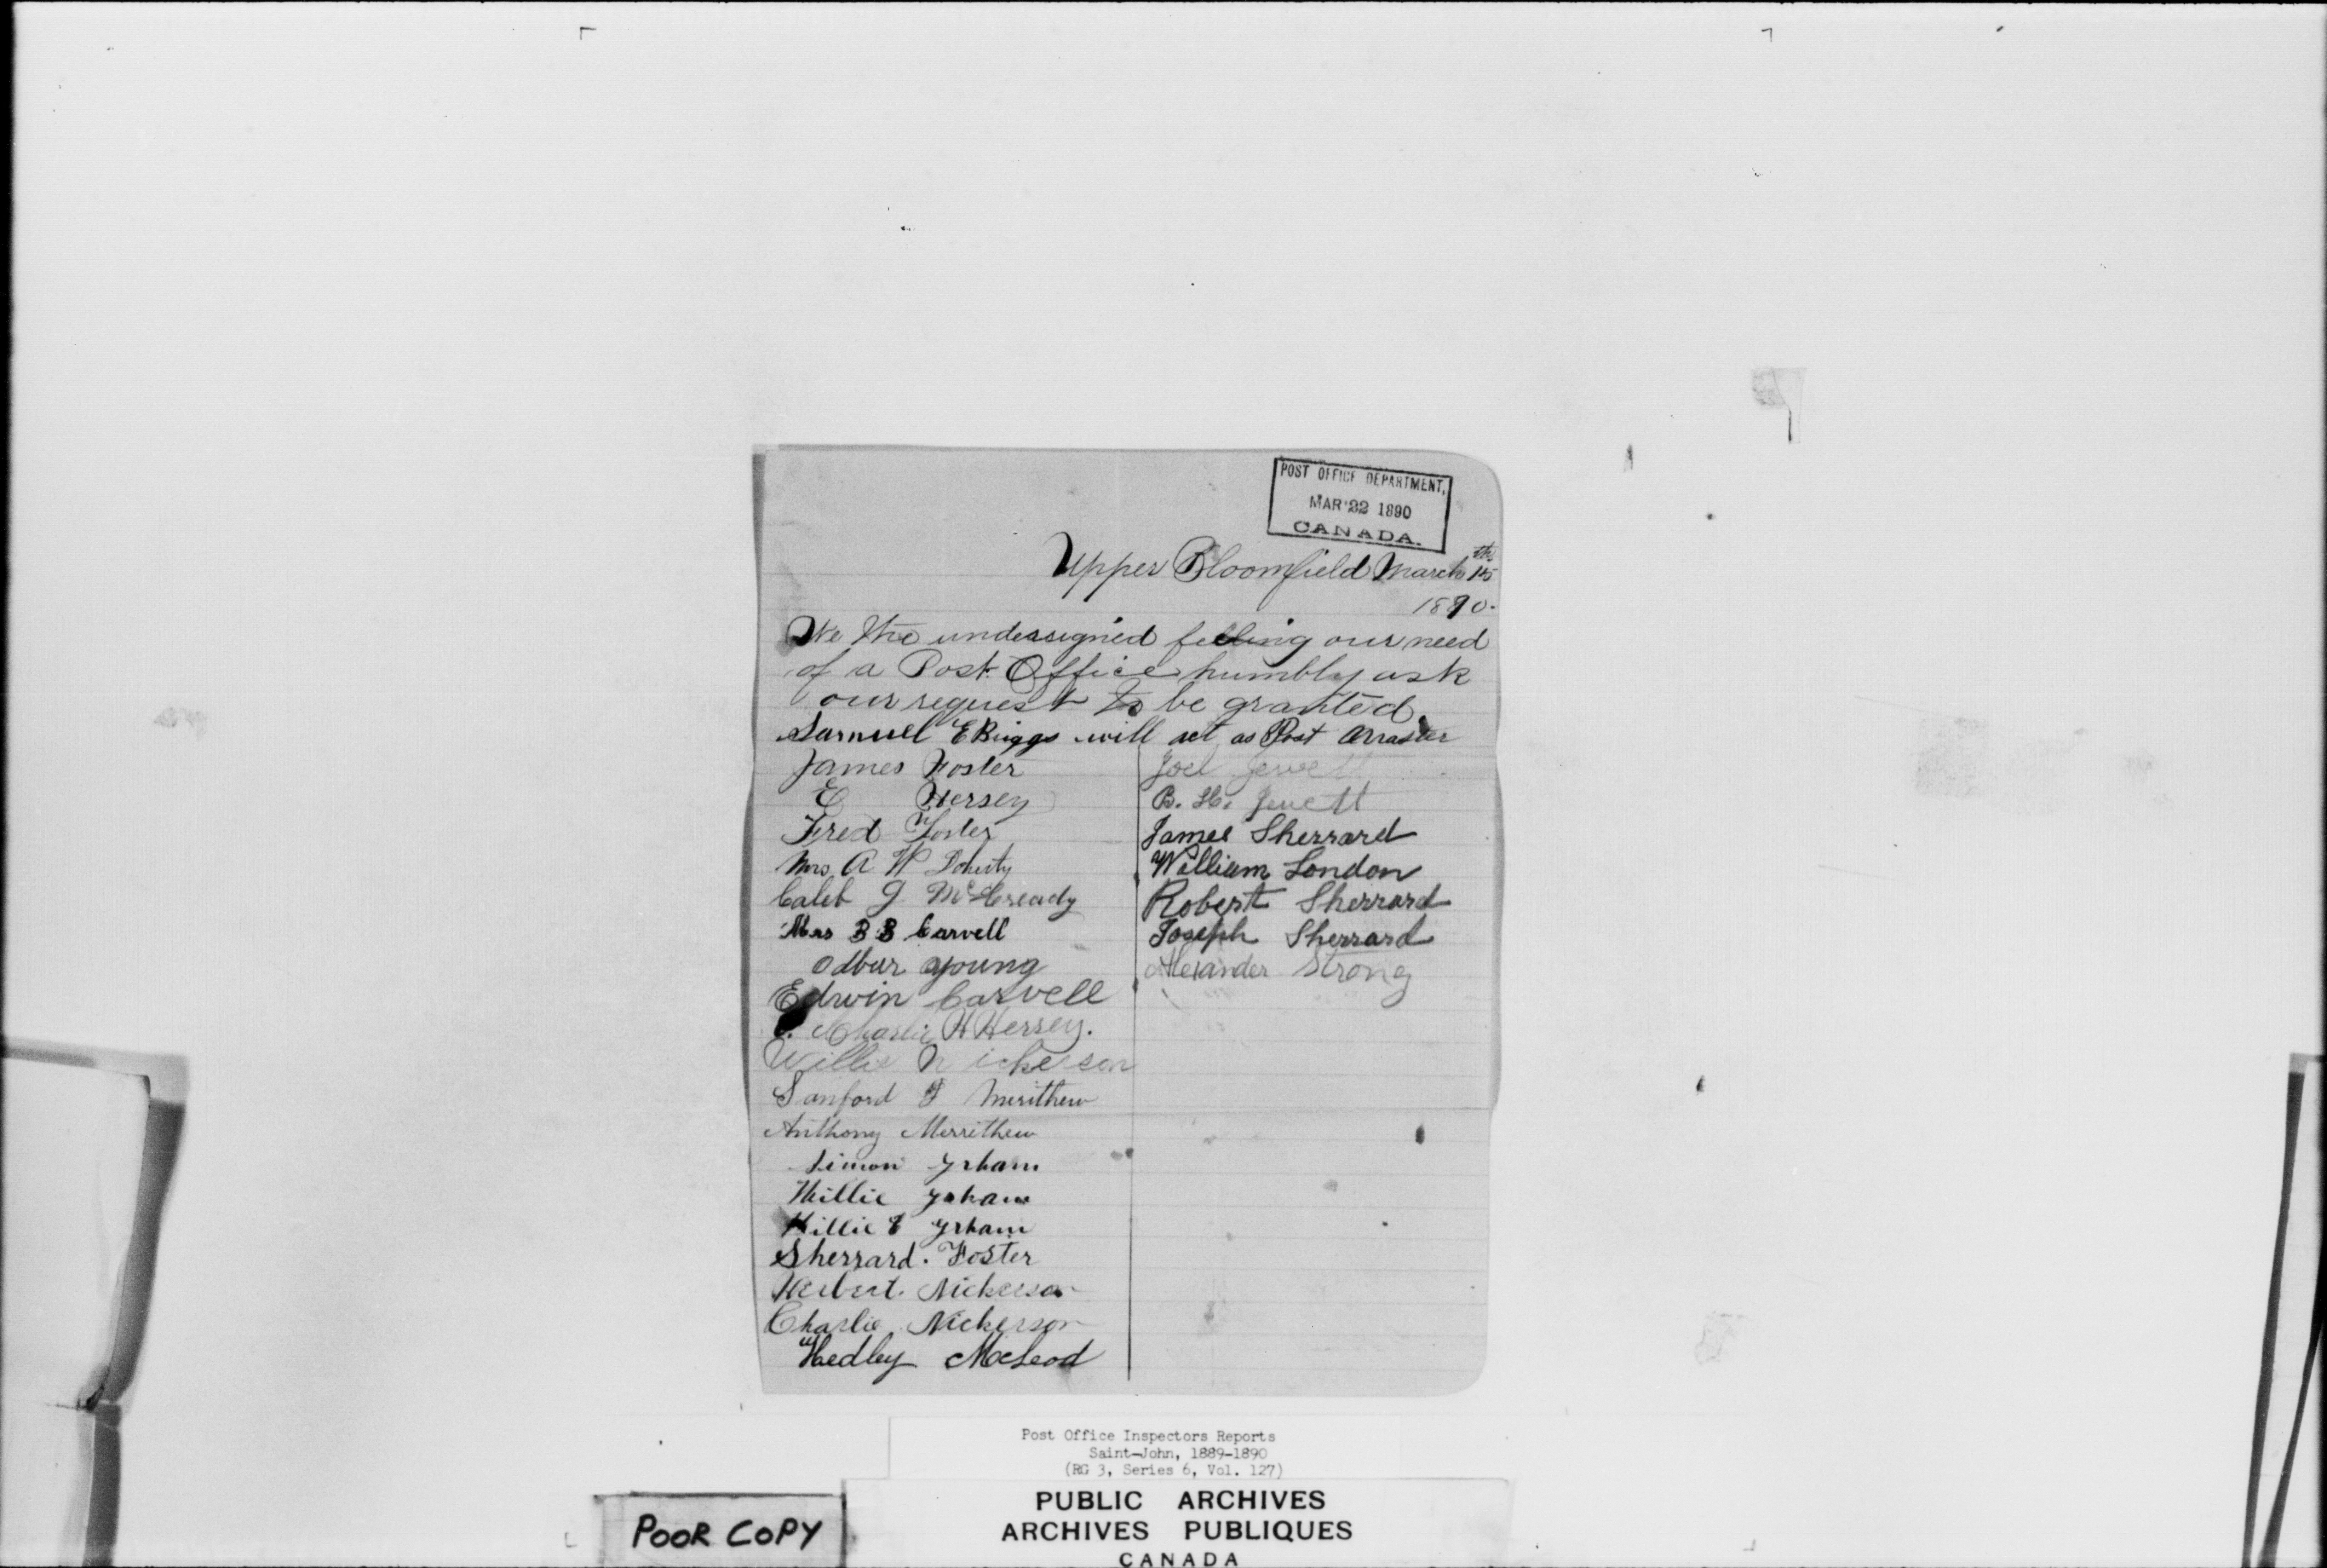 POST OFFICE DEPARTMENT,
MAR 22 1890
CANADA.
Upper Bloomfield March 15th
1890.
We the undersigned feeling our need
of a Post Office humbly ask
our request to be granted.
Samuel E Briggs will act as Post Master
James Foster
E Hersey
Fred Foster
Mrs. A W Doherty
Caleb J McCready
Mrs B B Carvell
Odbur Young
Edwin Carvell
Charlie H Hersey.
Willie Nickerson
Sanford F Merithew
Anthony Merrithew
Simon Grham
Willie Grham
Willie E Grham
Sherrard. Foster
Herbert. Nickerson
Charlie Nickerson
Hedley McLeod
Joel Jewett
B. H. Jewett
James Sherrard
William London
Robert Sherrard
Joseph Sherrard
Alexander Strong
Post Office Inspectors Reports
Saint-John, 1889-1890
(RG 3, Series 6, Vol. 127)
POOR COPY
PUBLIC ARCHIVES
ARCHIVES PUBLIQUES
CANADA